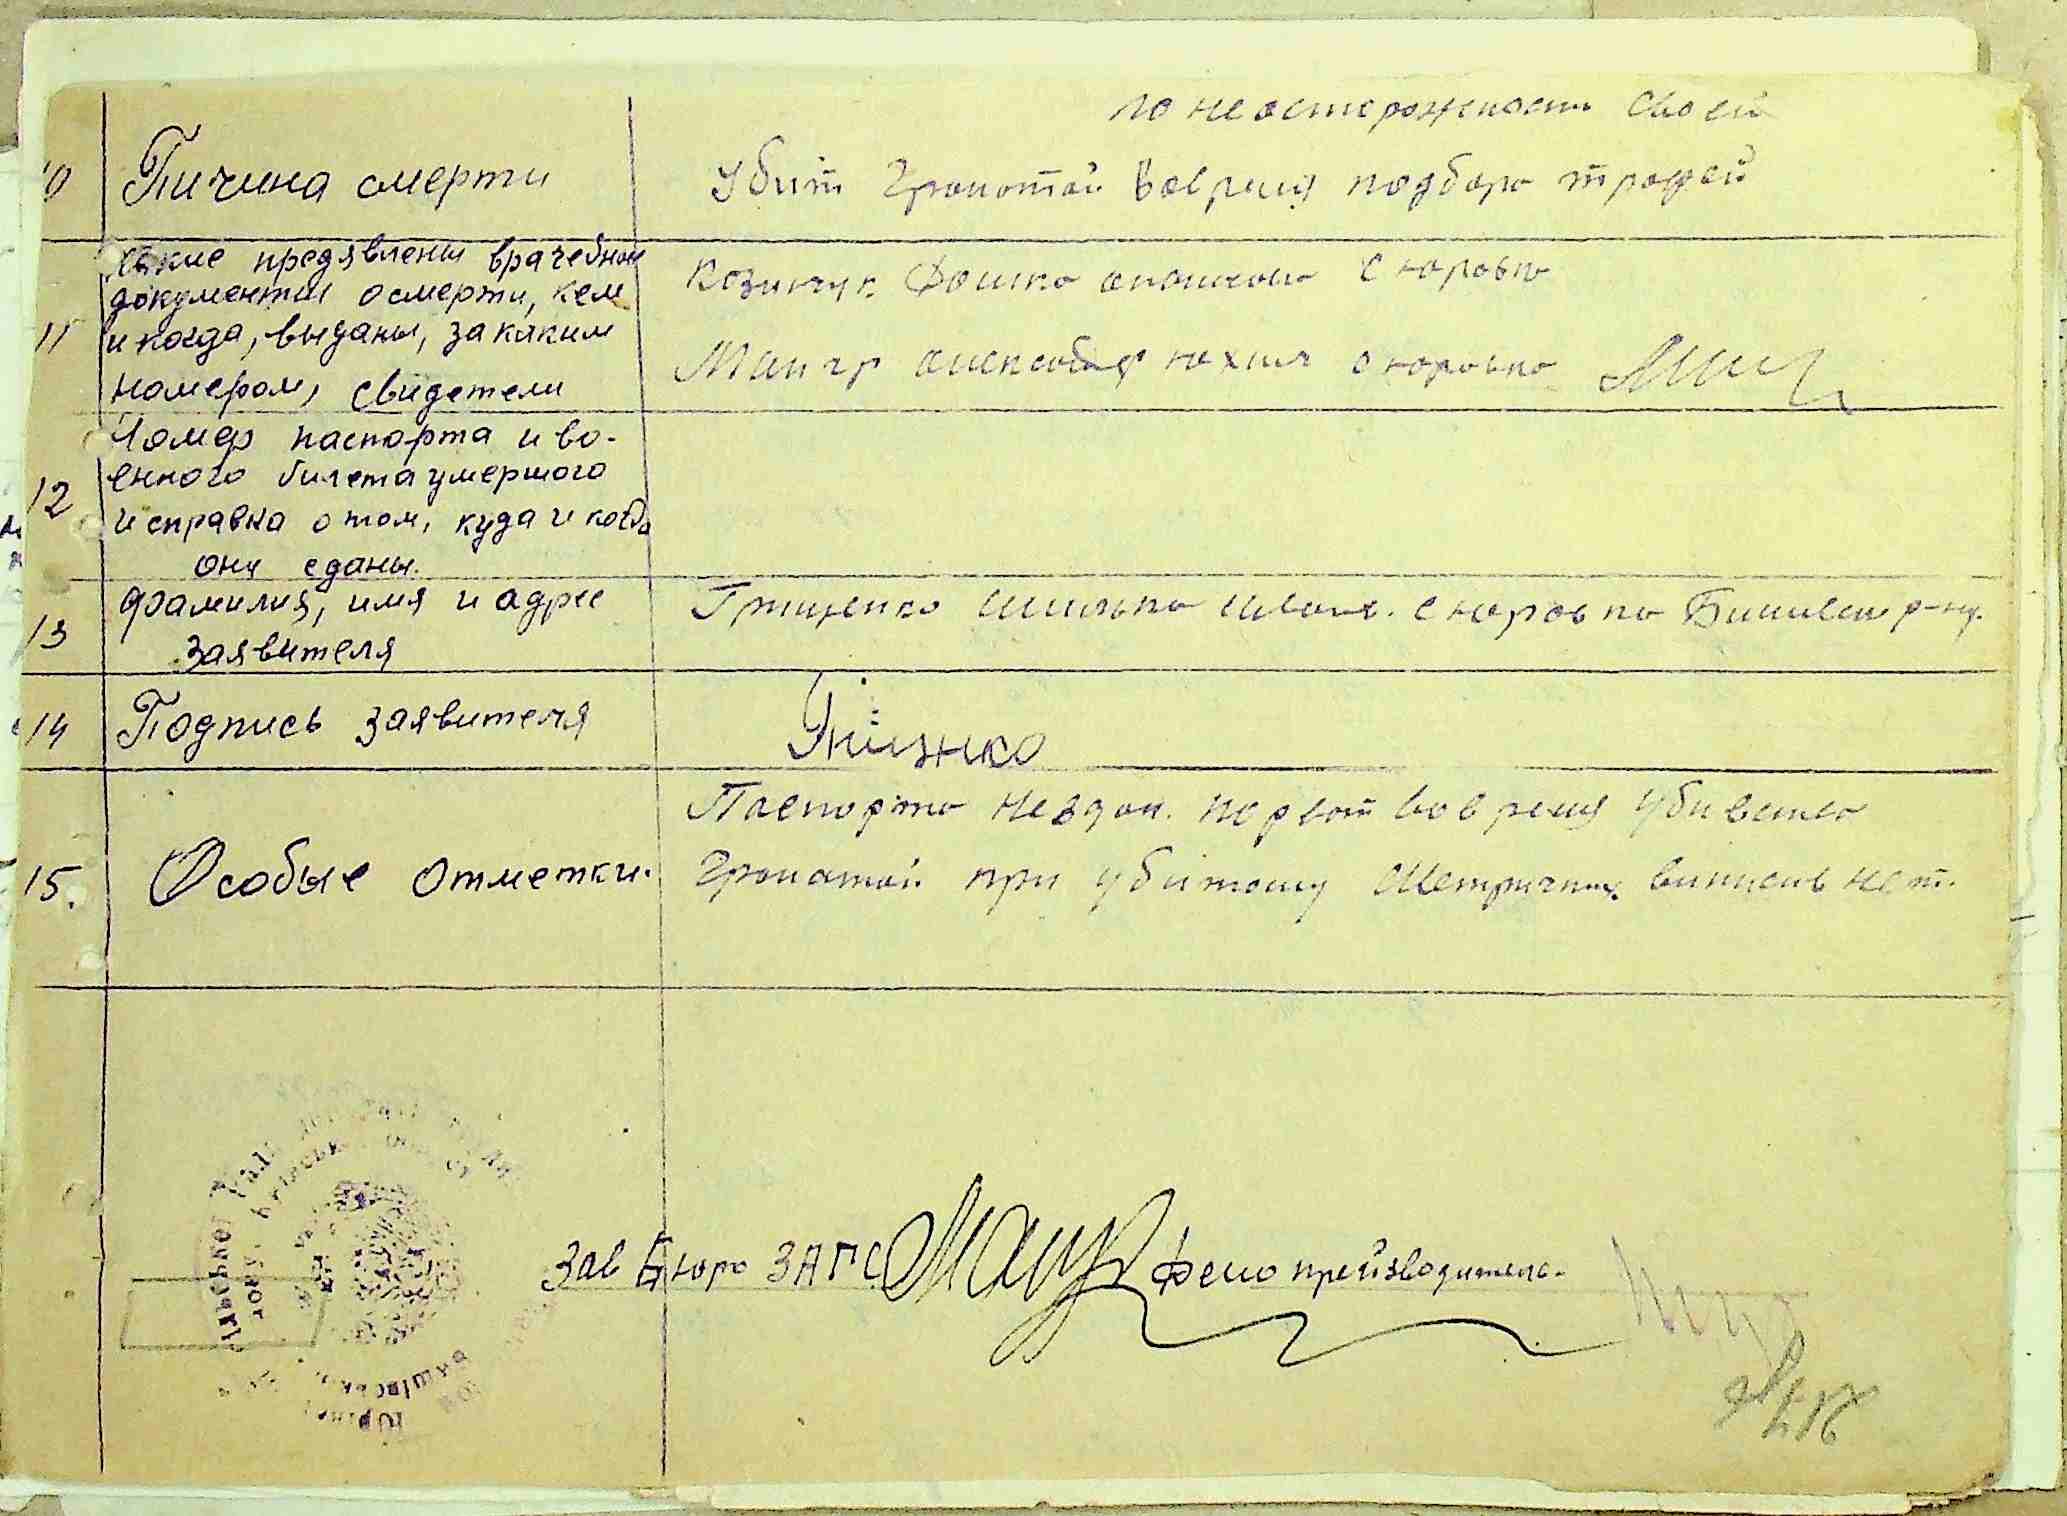 по неосторожности своей
10 Пичина смерти
Убит гранатой вовремя подбора трофей
11 Какие предявлены врачебные
документы о смерти, кем
и когда, выданы, за каким
номером, свидетели
Козинчук с юровка
с юровка
12 Номер паспорта и во-
енного билета умершого
и справка о том, куда и когда
они сданы.
13 Фамилия, имя и адрес
заявителя
Грищенко с юровка р-ну.
14 Подпись заявителя
15. Особые отметки.
Паспорта нездан. порват вовремя убивства
гранатой при убитому Метричних випись нет.
Зав Бюро ЗАГС Дело прейзводитель.